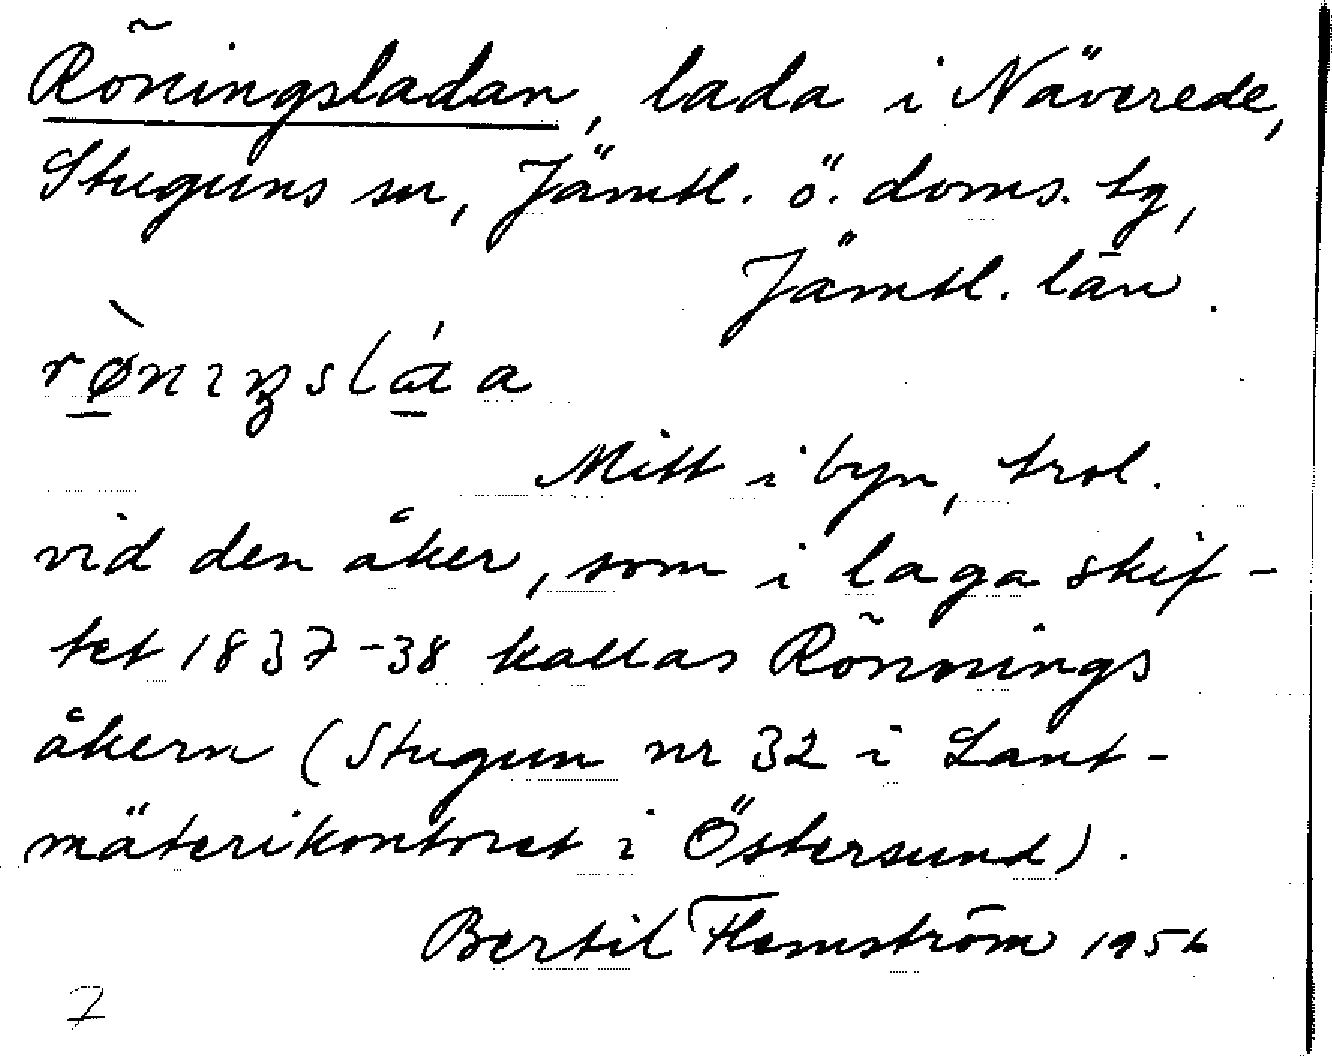 Röningsladan, lada i Näverede,
Stuguns sn, Jämtl. ö. doms. tg,
Jämtl. län.
Mitt i byn, trol.
vid den åker, som i laga skif-
tet 1837-38 kallas Rönnings
åkern (Stugun nr 32 i Lant-
mäterikontoret i Östersund).
Bertil Flemström 1956
7